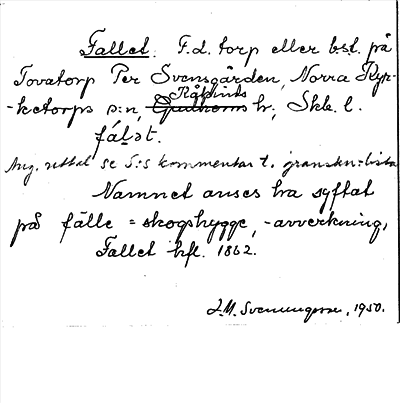 Fallet. F.d. torp eller bst. på
Tovatorp Per Svensgården, Norra Kyr-
-ketorps s:n, Kåkinds hr; Skb. l.
fál̲ət.
Ang. uttal se S:s kommentar t. granskn:lista
Namnet anses ha syftat
på fälle = skogshygge, -avverkning,
Fallet hfl. 1862.
J.M. Svenungsson, 1950.